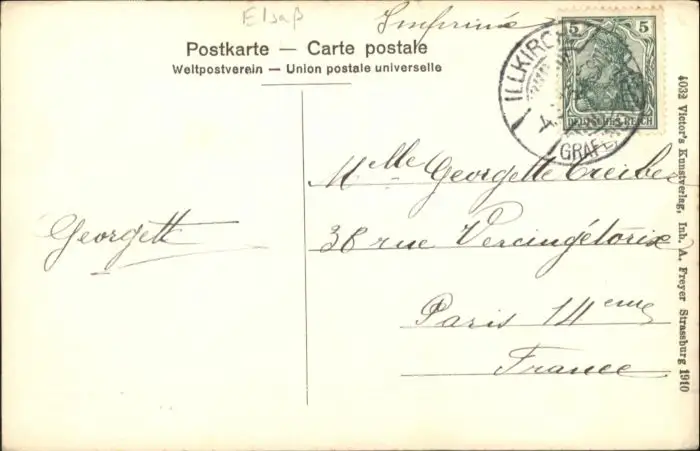 Elsaß
Imprimé
Postkarte — Carte postale
Weltpostverein — Union postale universelle
5 5
DEUTSCHES REICH
ILLKIRCH
GRAFE
Mlle Georgette Creibex
38 rue Vercingétorix
Paris 14eme
France
Georgette
4032 Victor's Kunstverlag, Inh. A. Freyer Strassburg 1910